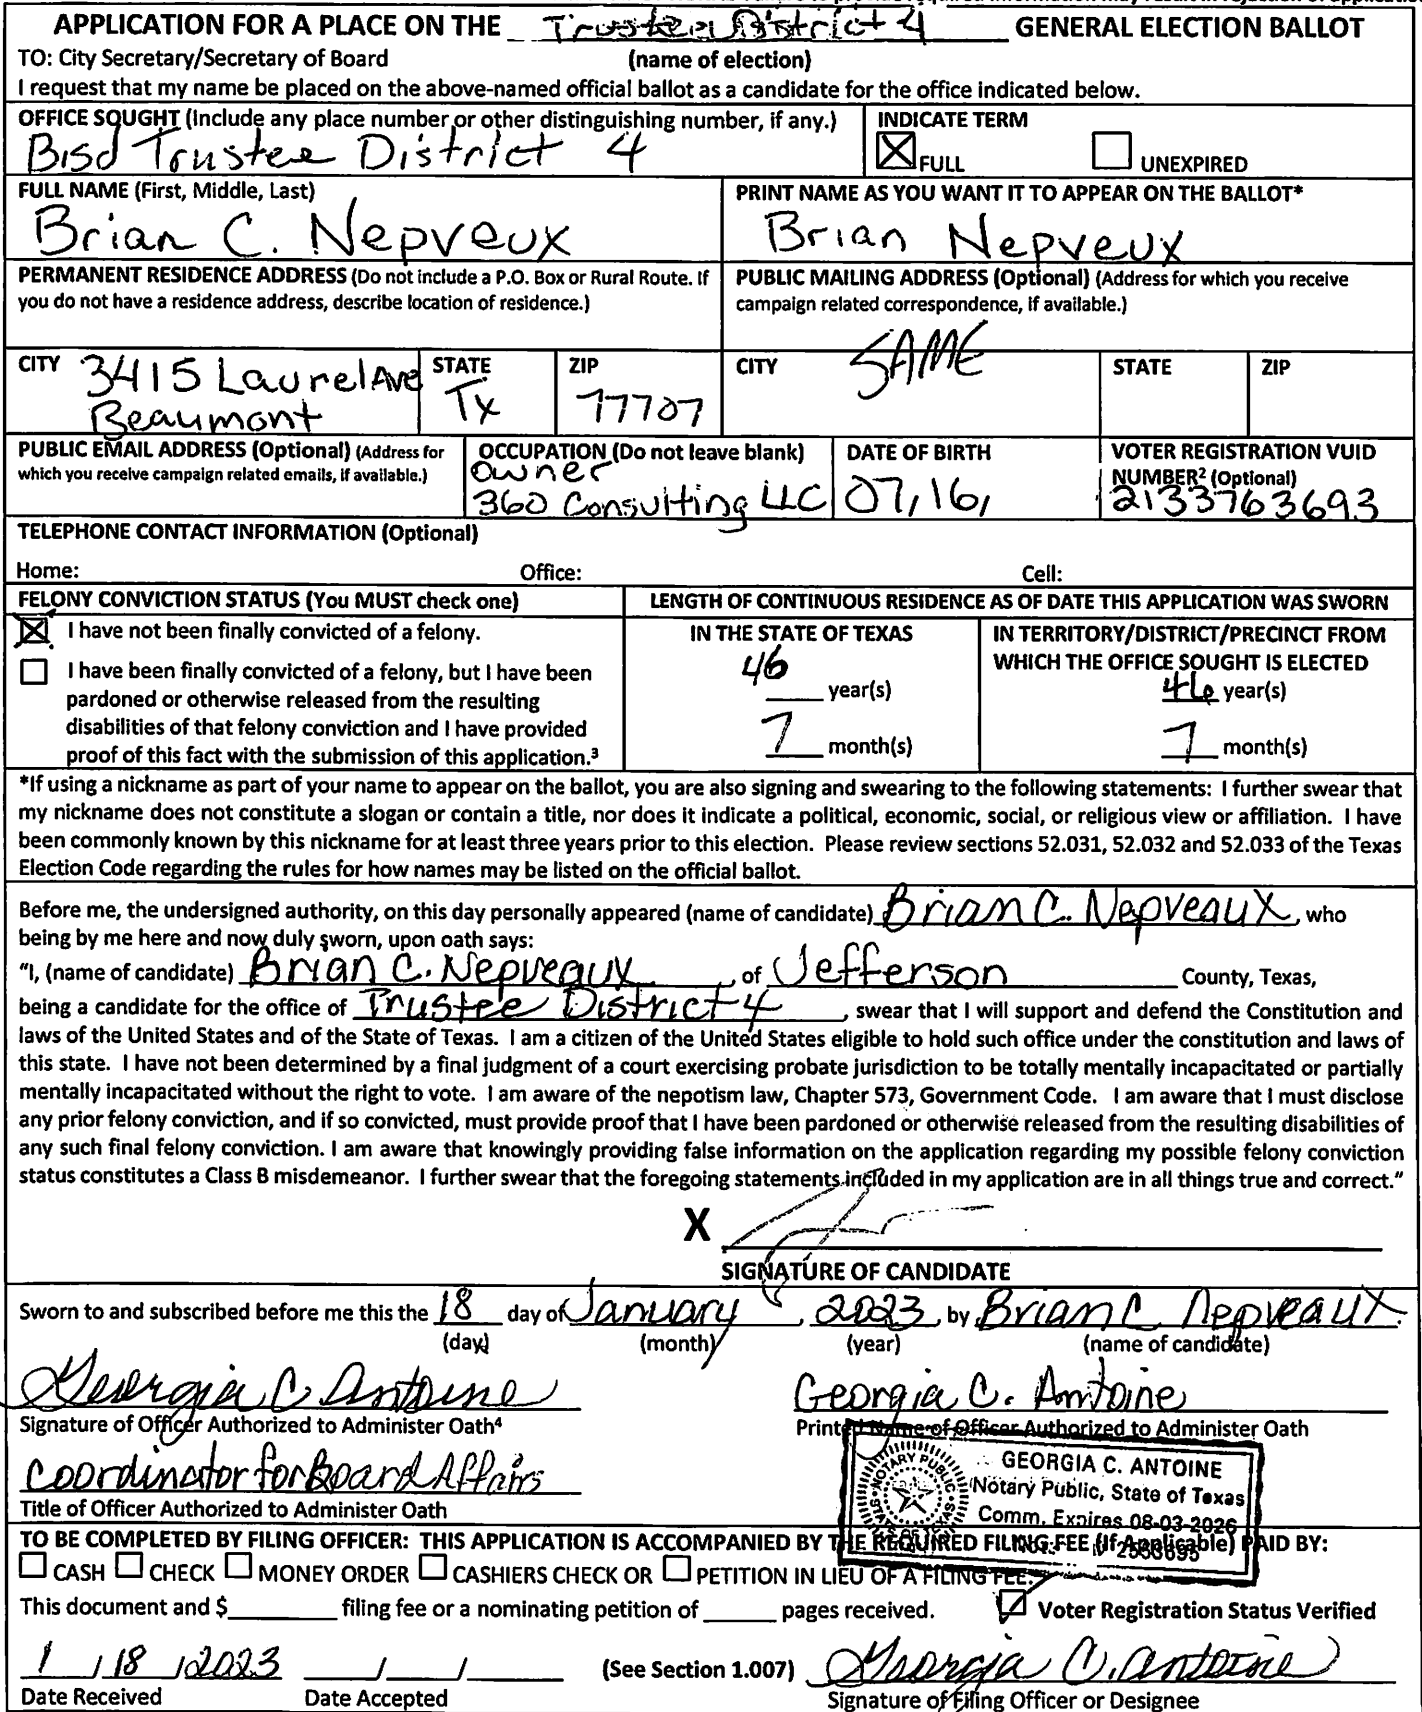 APPLICATION FOR A PLACE ON THE Trustee District 4 GENERAL ELECTION BALLOT
TO: City Secretary/Secretary of Board (name of election)
I request that my name be placed on the above-named official ballot as a candidate for the office indicated below.
OFFICE SOUGHT (Include any place number or other distinguishing number, if any.) INDICATE TERM
Bisd Trustee District 4 FULL UNEXPIRED
FULL NAME (First, Middle, Last) PRINT NAME AS YOU WANT IT TO APPEAR ON THE BALLOT*
Brian C. Nepveux Brian Nepveux
PERMANENT RESIDENCE ADDRESS (Do not include a P.O. Box or Rural Route. If PUBLIC MAILING ADDRESS (Optional) (Address for which you receive
you do not have a residence address, describe location of residence.) campaign related correspondence, if available.)
SAME
CITY 3415 Laurel Ave STATE ZIP CITY STATE ZIP
Beaumont Tx 77707
PUBLIC EMAIL ADDRESS (Optional) (Address for OCCUPATION (Do not leave blank) DATE OF BIRTH VOTER REGISTRATION VUID
which you receive campaign related emails, if available.) owner NUMBER² (Optional)
360 Consulting LLC 07,16, 2133763693
TELEPHONE CONTACT INFORMATION (Optional)
Home: Office: Cell:
FELONY CONVICTION STATUS (You MUST check one) LENGTH OF CONTINUOUS RESIDENCE AS OF DATE THIS APPLICATION WAS SWORN
I have not been finally convicted of a felony. IN THE STATE OF TEXAS IN TERRITORY/DISTRICT/PRECINCT FROM
WHICH THE OFFICE SOUGHT IS ELECTED
I have been finally convicted of a felony, but I have been 46 year(s) 46 year(s)
pardoned or otherwise released from the resulting
disabilities of that felony conviction and I have provided 7 month(s) 7 month(s)
proof of this fact with the submission of this application.³
*If using a nickname as part of your name to appear on the ballot, you are also signing and swearing to the following statements: I further swear that
my nickname does not constitute a slogan or contain a title, nor does it indicate a political, economic, social, or religious view or affiliation. I have
been commonly known by this nickname for at least three years prior to this election. Please review sections 52.031, 52.032 and 52.033 of the Texas
Election Code regarding the rules for how names may be listed on the official ballot.
Before me, the undersigned authority, on this day personally appeared (name of candidate) Brian C. Nepveaux, who
being by me here and now duly sworn, upon oath says:
"I, (name of candidate) Brian C. Nepveaux, of Jefferson County, Texas,
being a candidate for the office of Trustee District 4, swear that I will support and defend the Constitution and
laws of the United States and of the State of Texas. I am a citizen of the United States eligible to hold such office under the constitution and laws of
this state. I have not been determined by a final judgment of a court exercising probate jurisdiction to be totally mentally incapacitated or partially
mentally incapacitated without the right to vote. I am aware of the nepotism law, Chapter 573, Government Code. I am aware that I must disclose
any prior felony conviction, and if so convicted, must provide proof that I have been pardoned or otherwise released from the resulting disabilities of
any such final felony conviction. I am aware that knowingly providing false information on the application regarding my possible felony conviction
status constitutes a Class B misdemeanor. I further swear that the foregoing statements included in my application are in all things true and correct."
X
SIGNATURE OF CANDIDATE
Sworn to and subscribed before me this the 18 day of January, 2023, by Brian C Nepveaux.
(day) (month) (year) (name of candidate)
Georgia C Antoine Georgia C. Antoine
Signature of Officer Authorized to Administer Oath⁴ Printed Name of Officer Authorized to Administer Oath
Coordinator for Board Affairs
Title of Officer Authorized to Administer Oath
NOTARY PUBLIC
STATE OF TEXAS
GEORGIA C. ANTOINE
Notary Public, State of Texas
Comm. Expires 08-03-2026
TO BE COMPLETED BY FILING OFFICER: THIS APPLICATION IS ACCOMPANIED BY THE REQUIRED FILING FEE (If Applicable) PAID BY:
CASH CHECK MONEY ORDER CASHIERS CHECK OR PETITION IN LIEU OF A FILING FEE.
This document and $ filing fee or a nominating petition of pages received. Voter Registration Status Verified
1 / 18 / 2023 / / (See Section 1.007) Georgia C. Antoine
Date Received Date Accepted Signature of Filing Officer or Designee